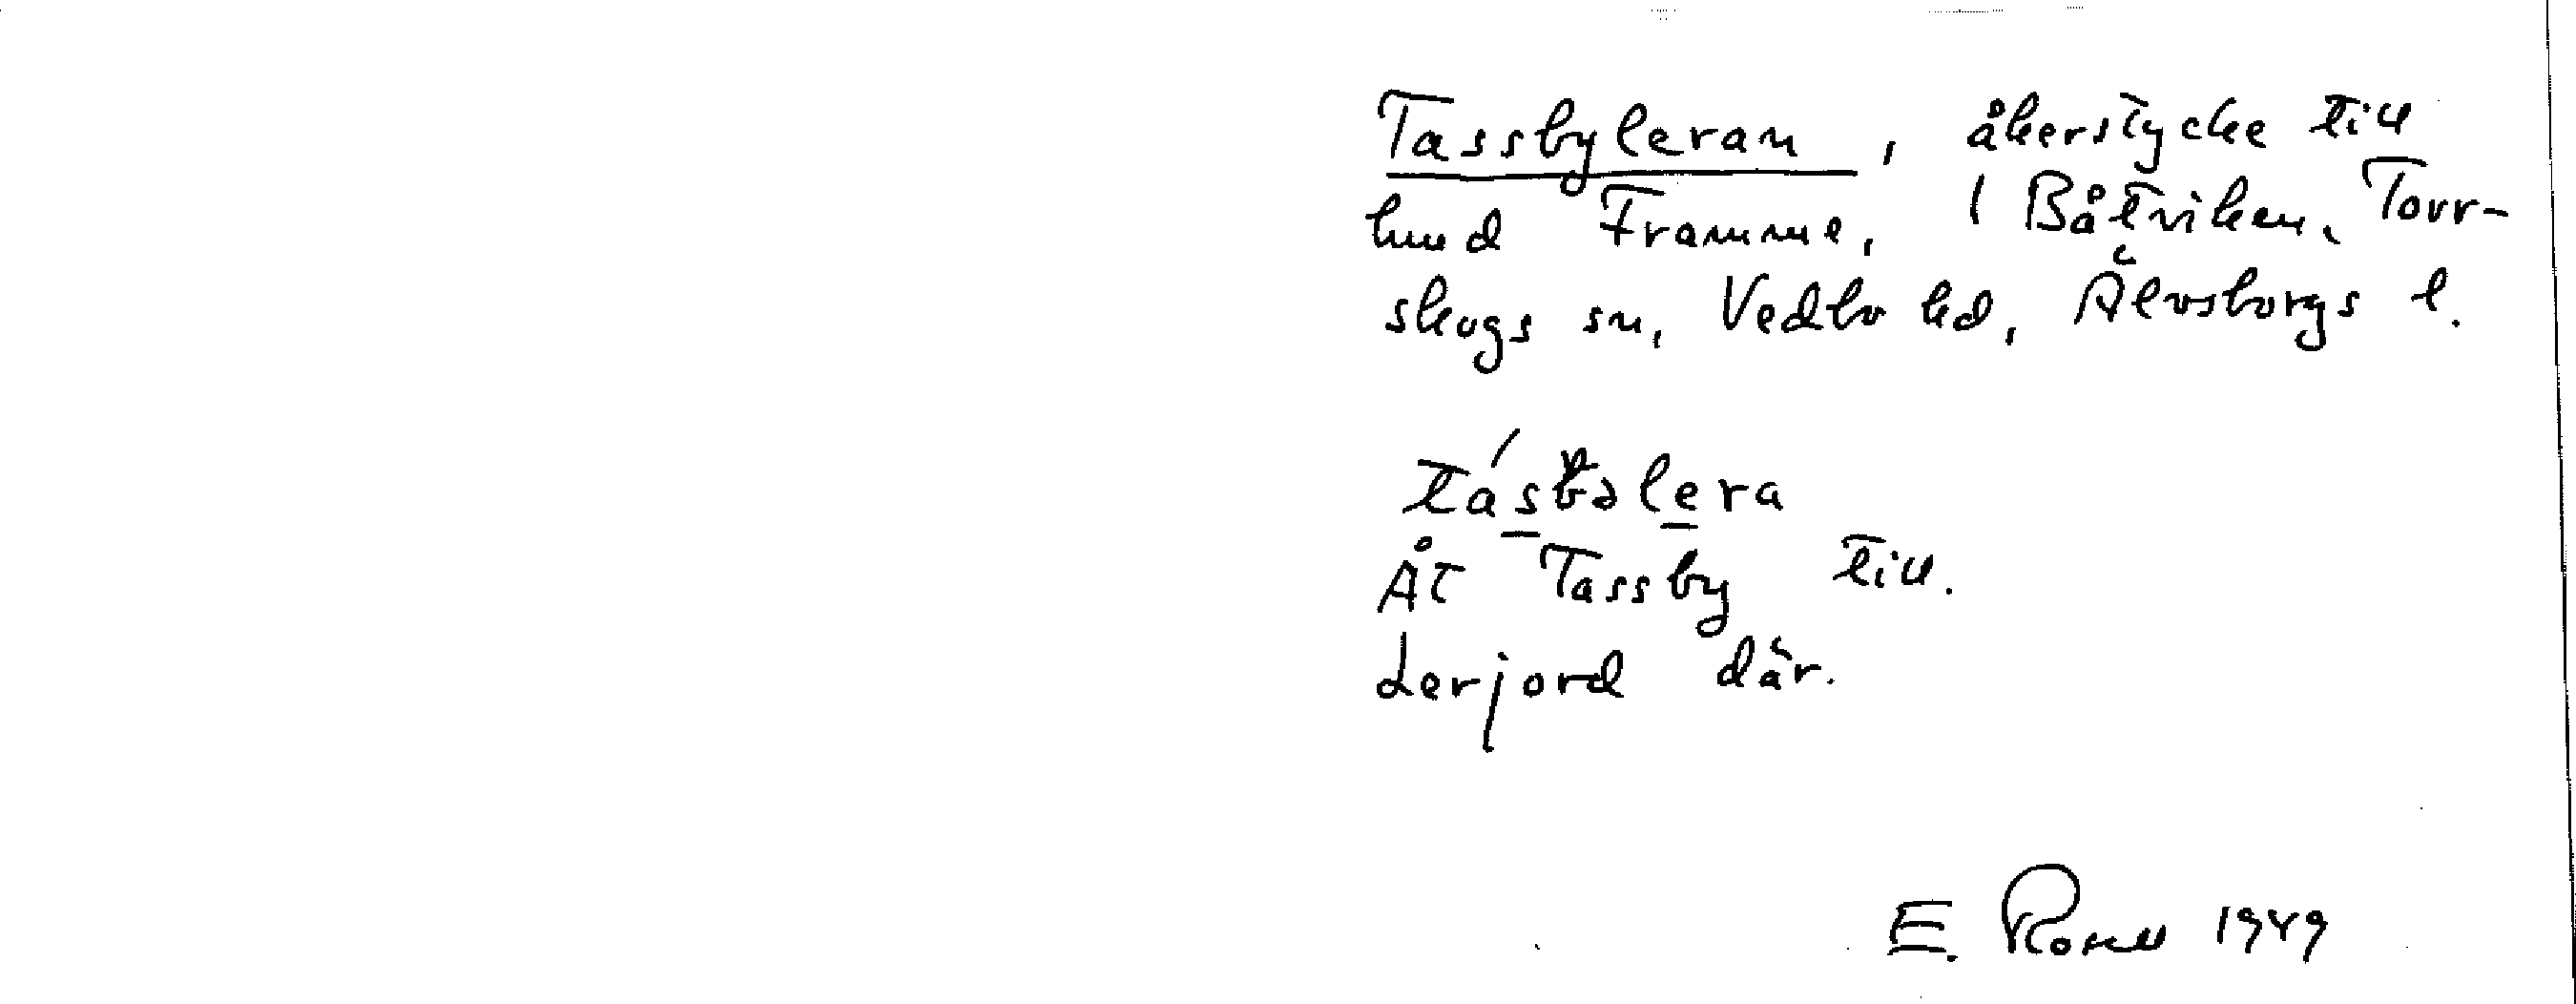 Tassbyleran, åkerstycke till
hmd Framme, 1 Båtviken, Torr-
skogs sn, Vedbo hd, Älvsborgs l.
tásbəlera
Åt Tassby till.
Lerjord där.
E. Rosell 1949